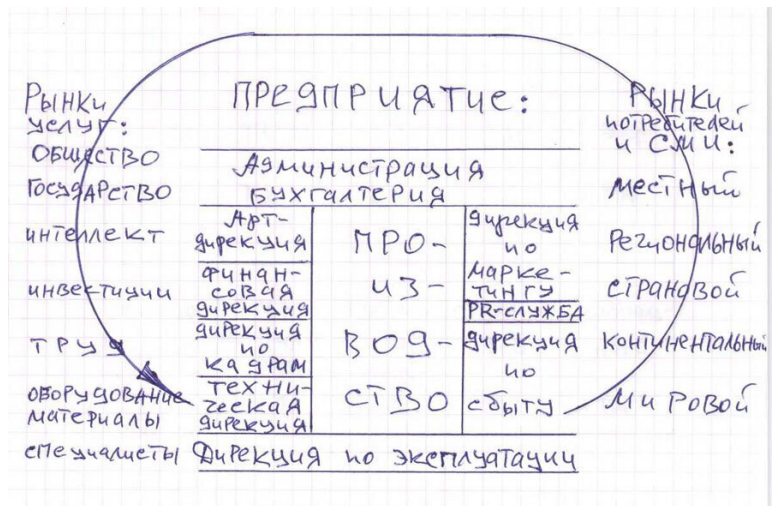 ПРЕДПРИЯТИЕ:
Рынки
услуг:
ОБЩЕСТВО
ГОСУДАРСТВО
интеллект
инвестиции
ТРУД
ОБОРУДОВАНИЕ
материалы
специалисты
Администрация
БУХГАЛТЕРИЯ
АРТ-
дирекция
ФИНАН-
СОВАЯ
дирекция
дирекция
по
кадрам
ТЕХНИ-
ческая
дирекция
ПРО-
ИЗ-
ВОД-
СТВО
дирекция
по
МАРКЕ-
ТИНГУ
PR-СЛУЖБА
дирекция
по
сбыту
Дирекция по эксплуатации
РЫНКИ
потребителей
и СМИ:
местный
Региональный
СТРАНОВОЙ
континентальный
Мировой